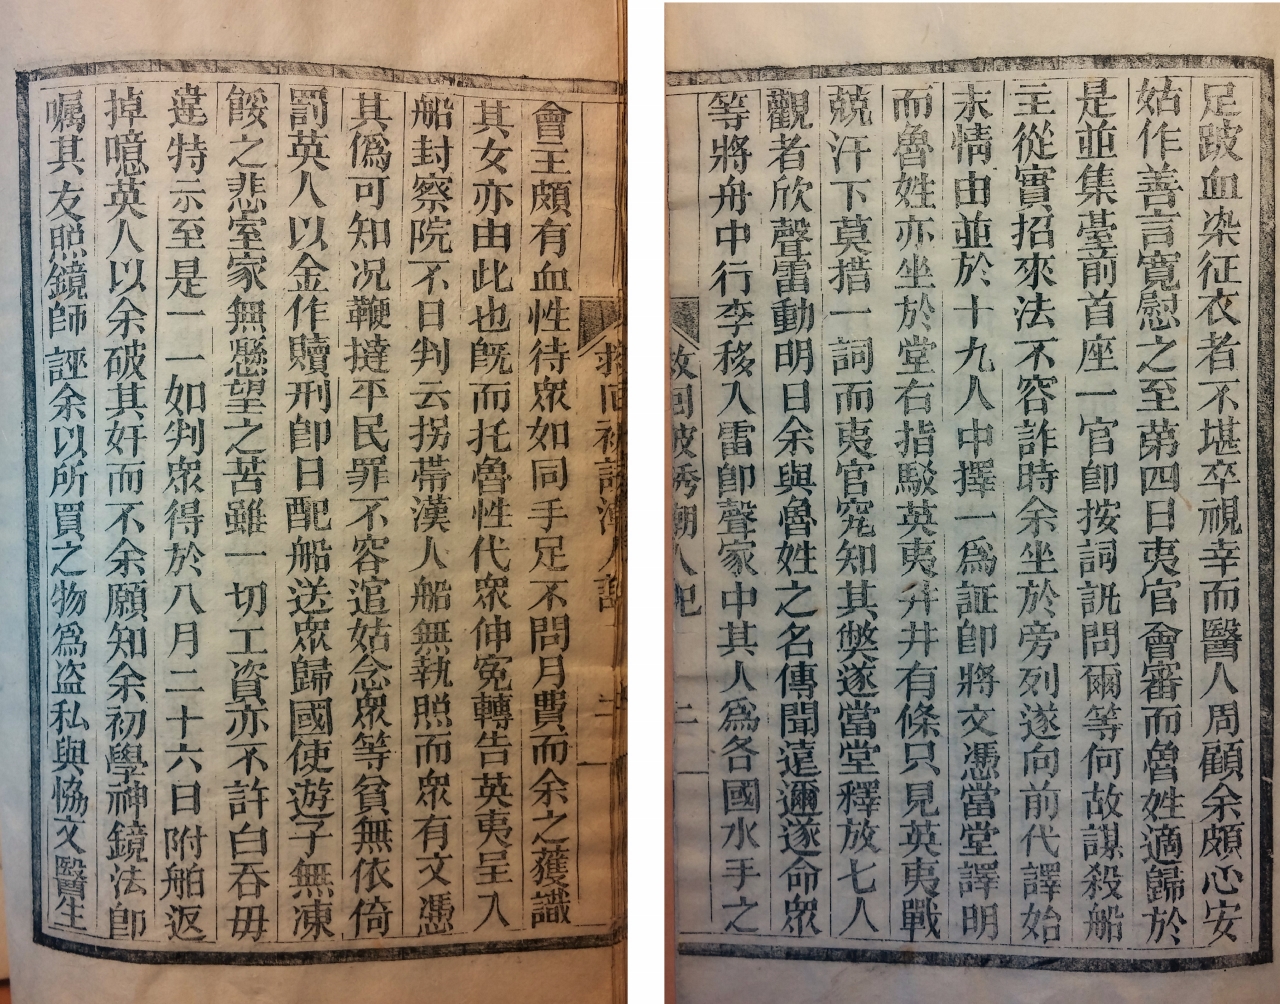 足跛血染征衣者不堪卒視幸而醫人周顧余頗心安
姑作善言寬慰之至第四日夷官會審而魯姓適歸於
是並集臺前首座一官卽按詞訊問爾等何故謀殺船
主從實招來法不容詐時余坐於旁列遂向前代譯始
末情由並於十九人中擇一爲証卽將文憑當堂譯明
而魯姓亦坐於堂右指駁英夷井井有條只見英夷戰
兢汗下莫措一詞而夷官究知其獘遂當堂釋放七人
觀者欣聲雷動明日余與魯姓之名傳聞遠邇遂命衆
等將舟中行李移入雷卽聲家中其人爲各國水手之
救回被誘潮人記 二
會主頗有血性待衆如同手足不問月費而余之獲識
其女亦由此也旣而托魯性代衆伸冤轉告英夷呈入
船封察院不日判云拐帶漢人船無執照而衆有文憑
其僞可知况鞭撻平民罪不容逭姑念衆等貧無依倚
罰英人以金作贖刑卽日配船送衆歸國使遊子無凍
餒之悲室家無懸望之苦雖一切工資亦不許白吞毋
違特示至是一一如判衆得於八月二十六日附舶返
掉噫英人以余破其奸而不余願知余初學神鏡法卽
囑其友照鏡師誣余以所買之物爲盜私與恊文醫生